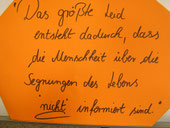 "Das größte Leid
entsteht dadurch, dass
die Menschheit über die
Segnungen des Lebens
nicht informiert sind."